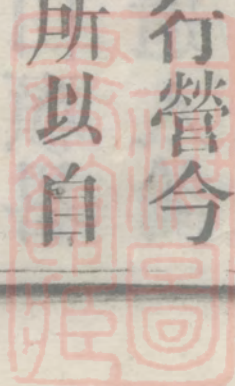 行營今
所以自